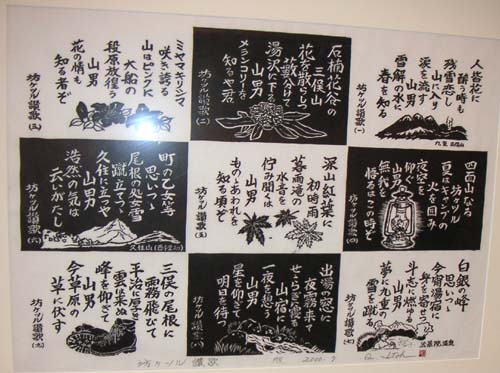 人皆花に
酔う時も
残雪恋し
山へ入り
涙を流す
山男
雪解の水に
春を知る
九重
坊ガツル讃歌(一)
石楠花谷の
三俣山
花を散らしつ
藪分けて
湯沢に下る
山男
メランコリーを
知るや君
坊ガツル讃歌(二)
ミヤマキリシマ
咲き誇る
山はピンクに
大船の
段原彷徨う
山男
花の情も
知る者ぞ
坊ガツル讃歌(三)
四面山なる
坊ガツル
夏はキャンプの
火を囲み
夜空を仰ぐ
山男
無我を
悟るはこの時ぞ
坊ガツル讃歌(四)
深山紅葉に
初時雨
暮雨滝の
水音を
佇み聞くは
山男
ものゝあわれを
知る頃ぞ
坊ガツル讃歌(五)
町の乙女等
思いつゝ
尾根の処女雪
蹴立てつゝ
久住に立つや
山男
浩然の気は
云いがたし
久住山
坊ガツル讃歌(六)
白銀の峰
思いつゝ
今宵湯宿に
身を寄せつ
斗志に燃ゆる
山男
夢に九重の
雪を蹴る
法華院温泉
坊ガツル讃歌(七)
出湯の窓に
夜霧来て
せゝらぎ寝る
山宿に
一夜を憩う
山男
星を仰ぎて
明日を待つ
坊ガツル讃歌(八)
三俣の尾根に
霧飛びて
平治に厚き
雲は来ぬ
峰を仰ぎて
山男
今草原の
草に伏す
坊ガツル讃歌(九)
坊ガツル 讃歌
2000.9